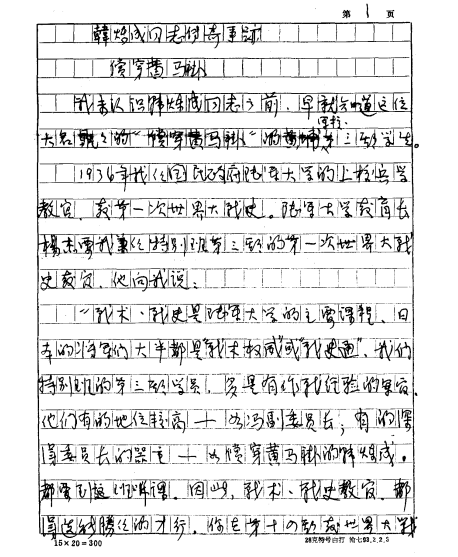 第 1 页
韩练成同志传奇事迹
惯穿黄马褂
我未认识韩练成同志之前,早就知道这位
大名的“惯穿黄马褂”的第三期学生。
1936年我任国民政府陆军大学的上校兵学
教官,教第一次世界大战史。陆军大学教育长
杨杰要我兼任特别班第三期的第一次世界大战
史教官,他向我说:
“战术、战史是陆军大学的主要课程,日
本的将军们大半都是“战术权威”或“战史通”,我们
特别班的第三期学员,多是有作战经验的军官,
他们有的地位较高——如冯副委员长;有的深
得委员长的器重——如惯穿黄马褂的韩练成。
都要到这班听课。因此,战术、战史教官,都
得胜任的才行。你在第十四期教世界大战
15×20=300